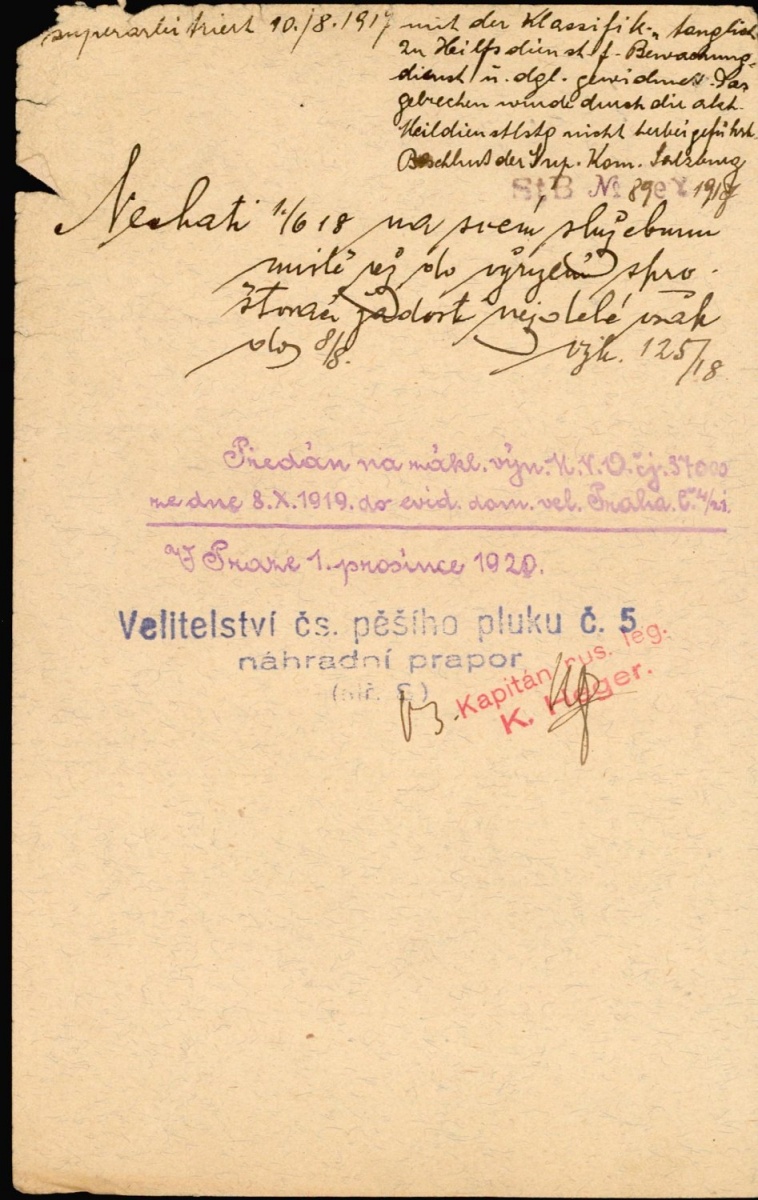 superarbitriert 10./8.1917 mit der Klassifik. „tauglich
zu Hilfsdienst f. Bewachung-
dienst u. dgl. gewidmet. Das
gebrechen wurde durch die akt.
Heildienstlstg nicht herbeigeführt.
Beschluß der Sup. Kom. Salzburg
StB № 89 1917
Nechati 1./6 18 na svém služebním
místě až do vyřízení spro-
šťovací žádost nejdelé však
do 8/8. vzk. 125/18
Předán na zákl. výn. M.N.O. čj. 37000
ze dne 8.X.1919. do evid. dom. vel. Praha. č. 4/21.
V Praze 1. prosince 1920.
Velitelství čs. pěšího pluku č. 5
náhradní prapor
Kapitán rus. leg.
K. Heger.